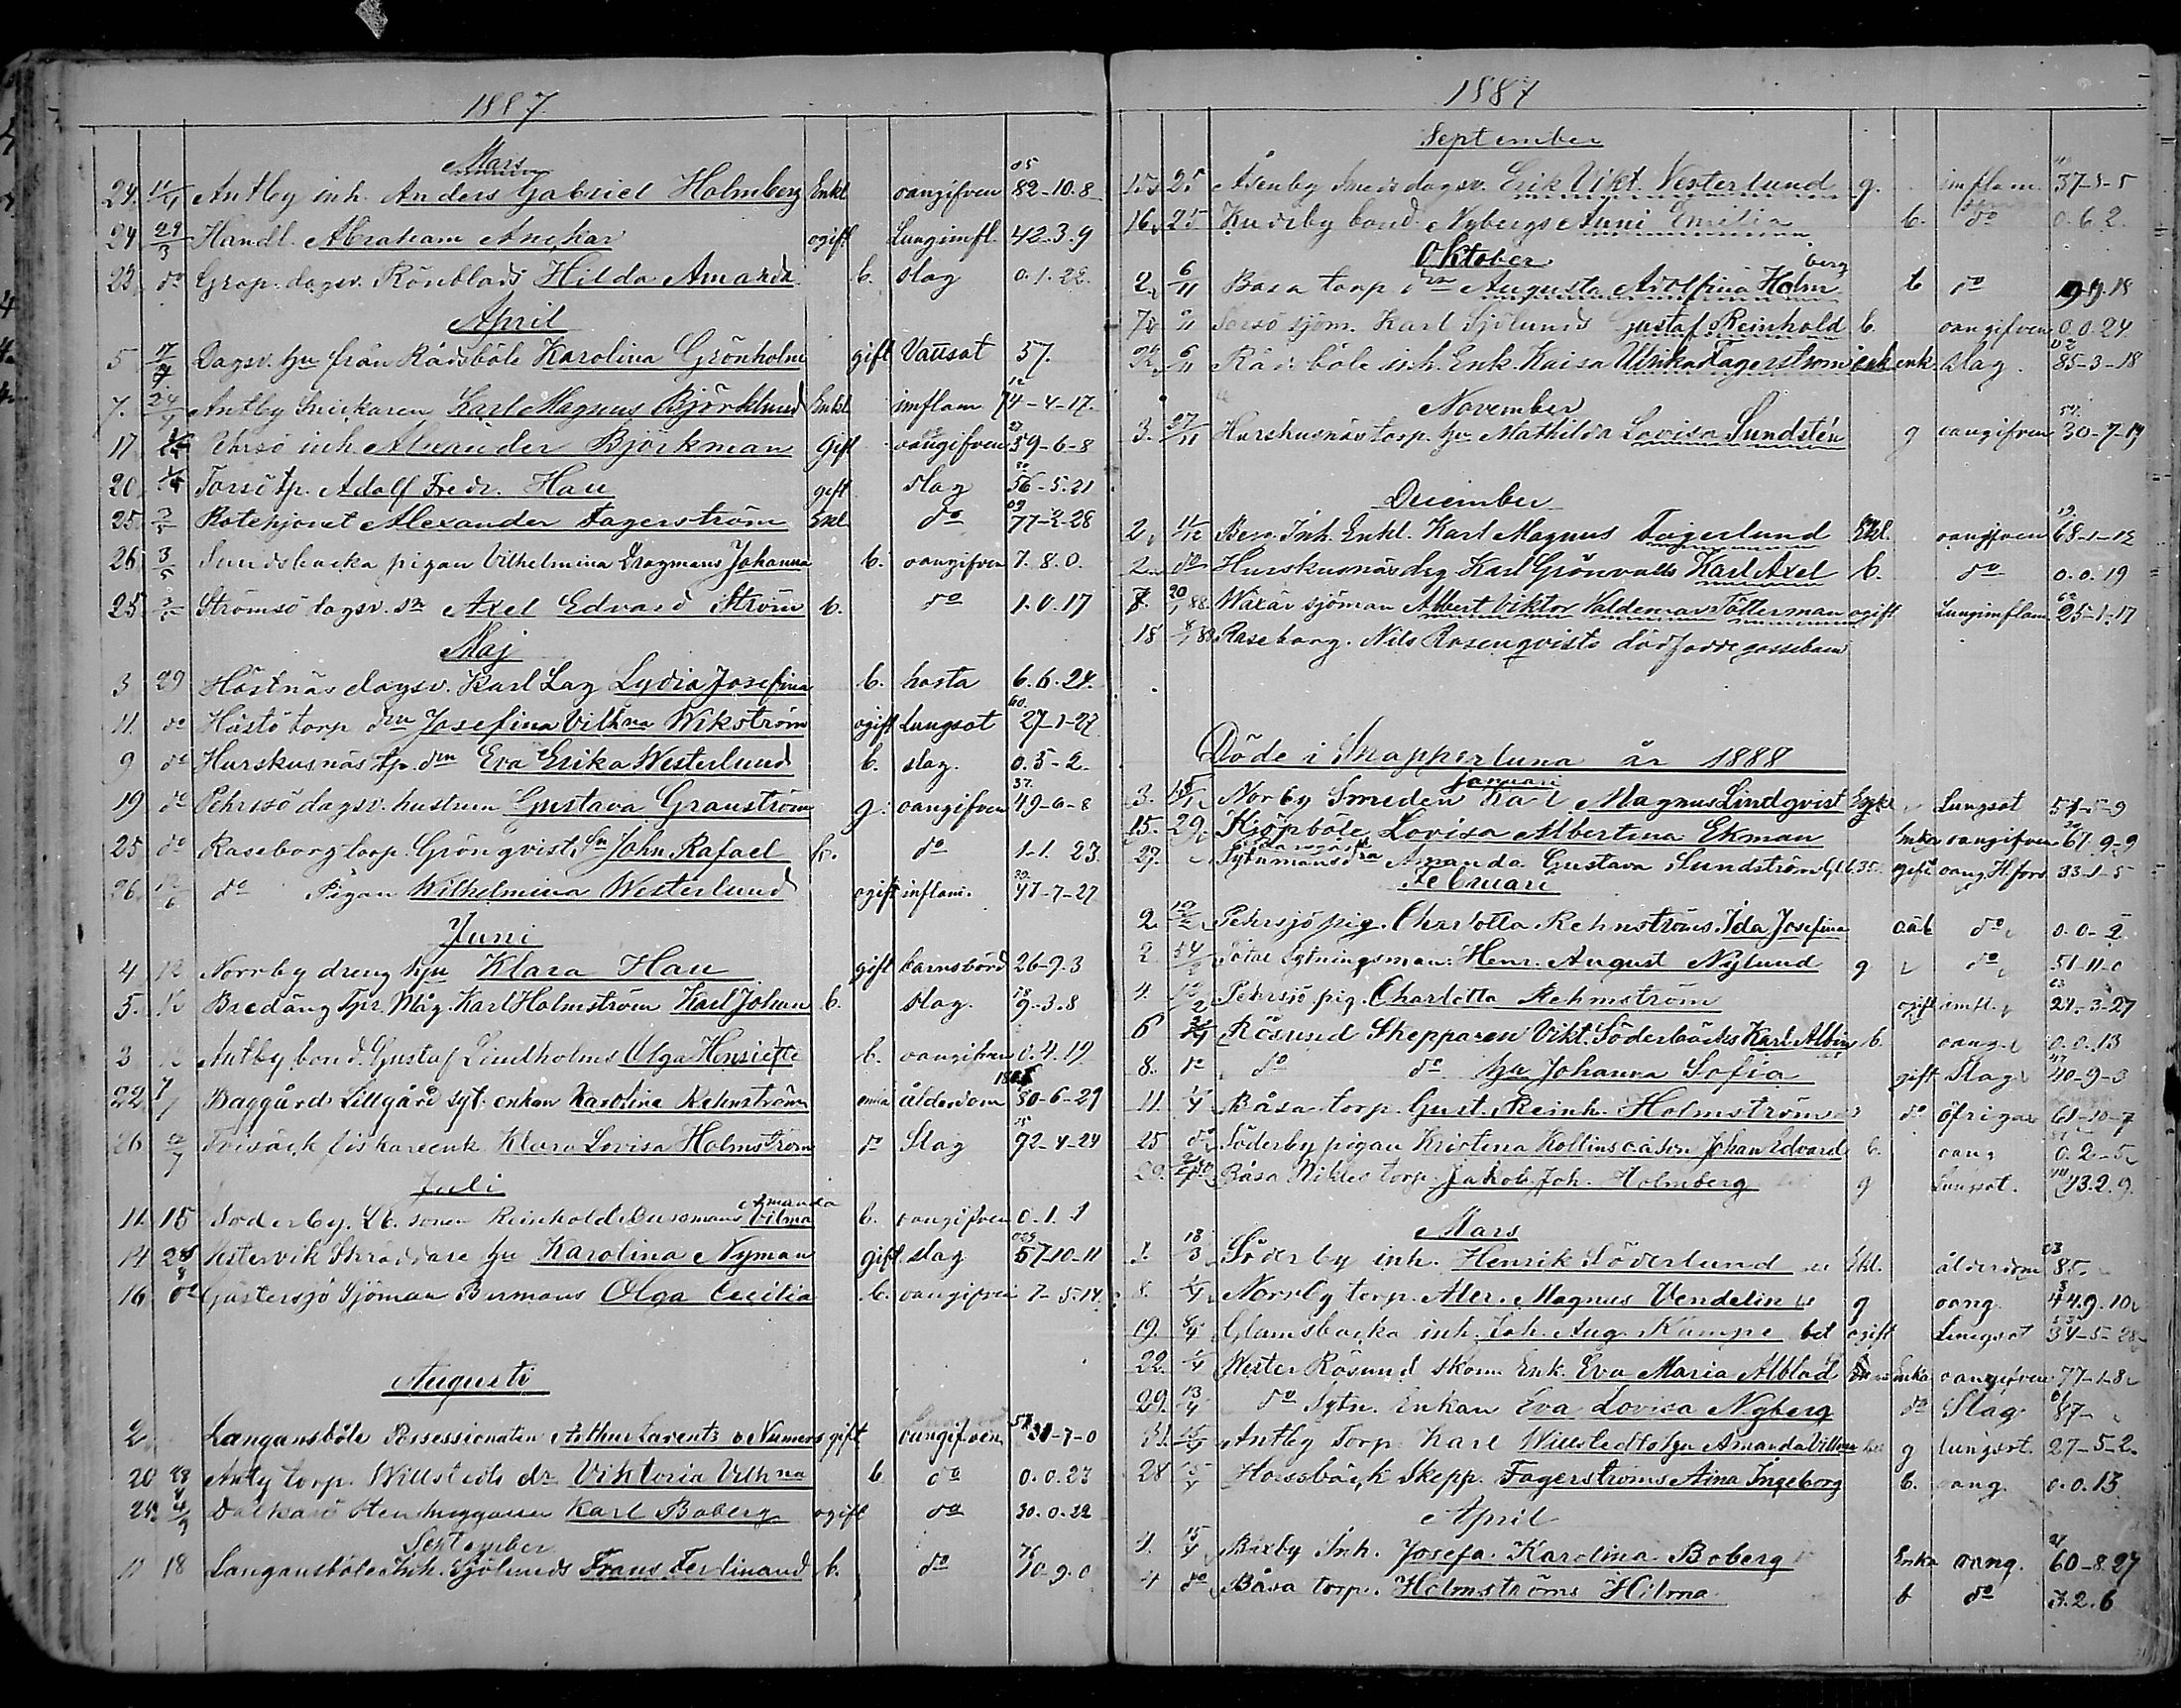 1887.
Mars
24. Antby inh. Anders Gabriel Holmberg Enkl oangifven 82-10-8 05
24 29/3 Handl. Abraham Anckar ogift Lunginfl. 42-3-9
23 do Grop. dagsv. Rönblads Hilda Amanda b. slag 0.1.22.
April
5 17/4 Dagsv. hu från Rådsböle Karolina Grönholm gift Vattsot 37.
7. 24/4 Antby Snickaren Karl Magnus Björklund Enkl inflam 74-4-17. 12
17 inh. Alexander Björkman gift oangifven 59-6-8 27
20. Torsö tp. Adolf Fredr. Hau gift slag 56-5-21
25. Rotehjonet Alexander Fagerström Enkl do 77-2-28 09
26. 3/5 Sunidsbacka pigan Vilhelmina Dragmans Johanna b. oangifven 7.8.0.
25. Strömsö dagsv. sn Axel Edvard Ström b. do 1.0.17
Maj
3 29 Hästnäs dagsv. Karl Lag Lydia Josefina b. hosta 6.6.24.
11. do Hästö torp. drn Josefina Vilhna Wikström ogift Lungsot 27-1-27 60.
9 do Hurskusnäs tp. drn Eva Erika Westerlund b. slag. 0.5-2.
19 do Pehrsö dagsv. hustrun Gustava Granström g. oangifven 49-6-8 37.
25 do Raseborg torp. Grönqvists sn John Rafael b. do 1-1.23.
26. 12/6 do Pigan Wilhelmina Westerlund ogift inflam. 47-7-27 39
Juni
4 12 Norrby dreng hu Klara Hau gift barnsbörd 26-9-3
5. 12 Bredäng Tpr. Måg. Karl Holmström Karl Johan b. slag. 9-3-8
3 12 Antby bond. Gustaf Lindholms Olga Henriette b. oangifven 0.4.19
22. Baggårds Lillgård syt. enkan Karolina Rehnström enka ålderdom 80-6-29
26 12/7 Trisäck fiskareenk Klara Lovisa Holmström do Slag 92-4-24
Juli
Amanda
11. 15 Söderby. Lb. sonen Reinhold Bussmans Vilma b. oangifven 0.1.1
14 Vestervik Skräddare hu Karolina Nyman gift slag 57-10-11
16. do Gästersjö Sjöman Burmans Olga Cecilia b. oangifven 7-5.14.
Augusti
2 Langansböle Possessionaten Arthur Larentz v Numers gift oangifven 31-7-0
20 Antby torp. Willstedts dr Viktoria Vilhna b do 0.0.23
24 4/9 Dalkarö stenhuggaren Karl Boberg ogift do 30.0.22
September
11 18 Langansböle Inh. Sjölunds Frans Ferdinand b. do 10-9.0 76
1887
September
15. 25 Åsenby Smeds dagsv. Erik Vikt. Vesterlund g. inflam. 37-5-5
16. 25 Kudeby bond. Nybergs Anni Emelia b. do 0.6.2.
Oktober
berg
2. 6/11 Båsa torp drn Augusta Adolfina Holm b do 19.9.18
7. 6/11 Torsö sjöm. Karl Sjölunds Gustaf Reinhold b. oangifven 0.0.24.
6/11 Rådsböle inh. Enk. Kaisa Ulrika Fagerström enk. slag. 85-3-18 02
November
3. 27/11 Hurskusnäs torp. hu Mathilda Lovisa Sundstén g oangifven 30-7-19 57.
December
2. 11/12 Berg. Inh. Enkl. Karl Magnus Fagerlund Enkl. oangifven 68-1-12 19.
2. do Hurskusnäs dag Karl Grönvalls Karl Axel b. do 0.0.19
8. 20/1 88. Wäxär sjöman Albert Viktor Valdemar Tötterman ogift Lunginflam. 25-1-17 62
18 8/1 88. Raseborg. Nils Rosenqvists dödfödde gossebarn
Döde i Snappertuna år 1888
Januari
3. 15/1 Norby Smeden Karl Magnus Lindqvist Enkl Lungsot 57-5-9
15. 29. Kjöpböle Lovisa Albertina Ekman Enka oangifven 61.9-9
27. Sytnmans dra Amanda Gustava Sundström ogift oang H.fors 33-1-5
Februari
2. 12/2 Pehrsjö pig. Charlotta Rehnströms Ida Josefina oäb do 0.0-2.
2. Sytningsman. Henr. August Nylund g do 51-11-0
4. 12/2 Pehrsjö pig. Charlotta Rehnström ogift infl. 24-3-27 63
6 Rösund Skepparen Vikt. Söderbäcks Karl Albin b. oang. 0.0.13
8. do do do hu Johanna Sofia gift Slag. 40-9-3 47
11. 1/4 Båsa torp. Gust. Reinh. Holmström do öfriga 61-10-7
25 do Söderby pigan Kristina Kollins oä son Johan Edvard b. oang 0.2-5.
29. Båsa Nikles torp. Jakob Joh. Holmberg g Lungsot. 43.2.9. 44
Mars
1. 18/3 Söderby inh. Henrik Söderlund Enkl. ålderdom 85. 03
8. 1/4 Norrby torp. Alex. Magnus Vendelin g oang. 44.9.10
19. 8/4 Glamsbacka inh. Joh. Aug. Kämpe bet ogift Lungsot 34-5-28
22. 1/4 Wester Rösund skom. Enk. Eva Maria Alblad Enka oangifven 77-1-8
29. 13/4 do Sytn. Enkan Eva Lovisa Nyberg do Slag 87- 01
31. 15/4 Antby Torp. Karl Willstedts hu Amanda Vilhna g lungsot. 27-5-2.
28 15/4 Hossbäck Skepp. Fagerströms Aina Ingeborg b. oang. 0.0.13.
April
1. 15/4 Böxby Inh. Josefa Karolina Boberg Enka oang. 60-8.27
4 do Båsa torp. Holmströms Hilma b do 3.2.6